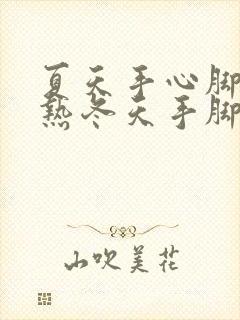 夏天手心脚
热冬天手脚
山吹美花